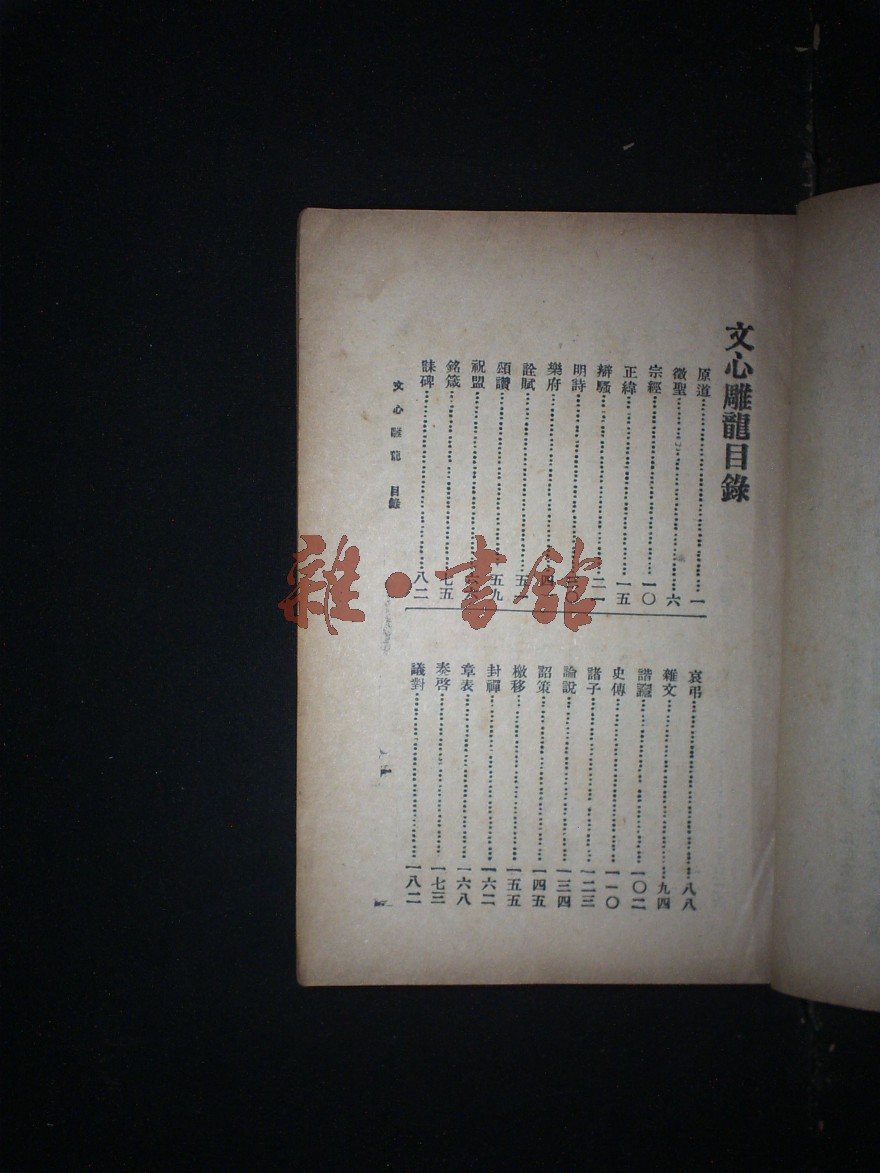 文心雕龍目錄
原道…一
徵聖…六
宗經…一〇
正緯…一五
辯騷…二一
明詩…三〇
樂府…四
詮賦…五一
頌讚…五九
祝盟…六六
銘箴…七五
誄碑…八二
哀弔…八八
雜文…九四
諧讔…一〇二
史傳…一一〇
諸子…一二三
論說…一三四
詔策…一四五
檄移…一五五
封禪…一六二
章表…一六八
奏啓…一七三
議對…一八二
文心雕龍 目錄
雜·書館